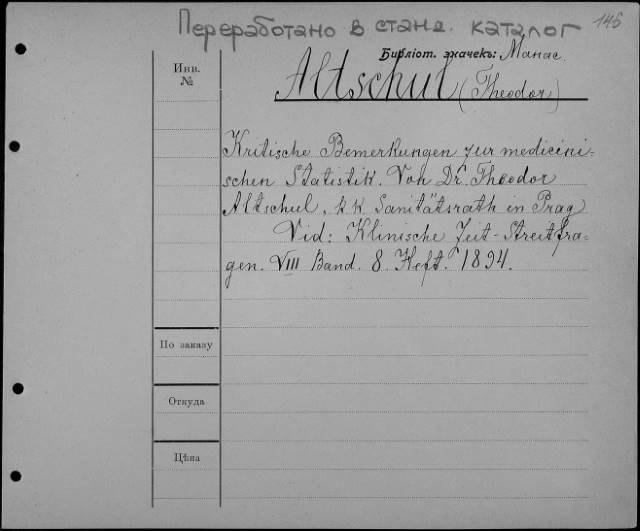 Переработано в станд. каталог
145
Библіот. значекъ: Манас.
Инв.
№
Altschul (Theodor)
Kritische Bemerkungen zur medicini-
schen Statistik. Von Dr. Theodor
Altschul, k k Sanitätsrath in Prag
Vid: Klinische Zeit-Streitfra-
gen. VIII Band. 8. Heft. 1894.
По заказу
Откуда
Цѣна